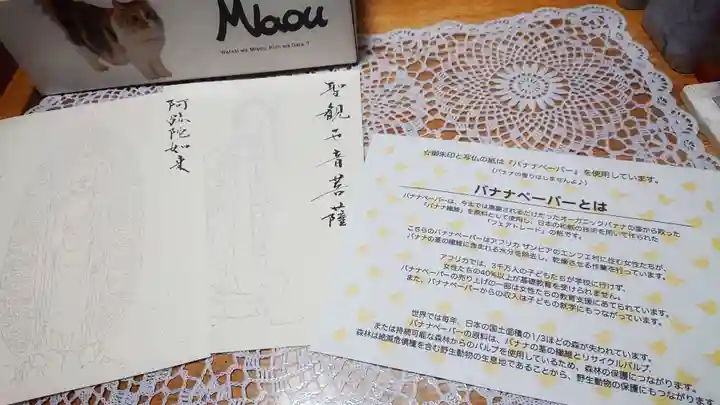 Mlaou
聖観世音菩薩
阿弥陀如来
☆御朱印と写仏の紙は『バナナペーパー』を使用しています。
(バナナの香りはしませんよ♪)
バナナペーパーとは
バナナペーパーは、今までは廃棄されるだけだったオーガニックバナナの茎から取った
「バナナ繊維」を原料として使用し、日本の和紙の技術を用いて作られた
「フェアトレード」の紙です。
こちらのバナナペーパーはアフリカ ザンビアのエンフェ村に住む女性たちが、
バナナの茎の繊維に含まれる水分を除去し、乾燥させる作業を行っています。
アフリカでは、3千万人の子どもたちが学校に行けず、
女性たちの40%以上が基礎教育を受けられません。
バナナペーパーの売り上げの一部は女性たちの教育支援にあてられています。
また、バナナペーパーからの収入は子どもの就学にもつながっています。
世界では毎年、日本の国土面積の1/3ほどの森が失われています。
バナナペーパーの原料は、バナナの茎の繊維とリサイクルパルプ、
または持続可能な森林からのパルプを使用しているため、森林の保護につながります。
森林は絶滅危惧種を含む野生動物の生息地であることから、野生動物の保護にもつながります